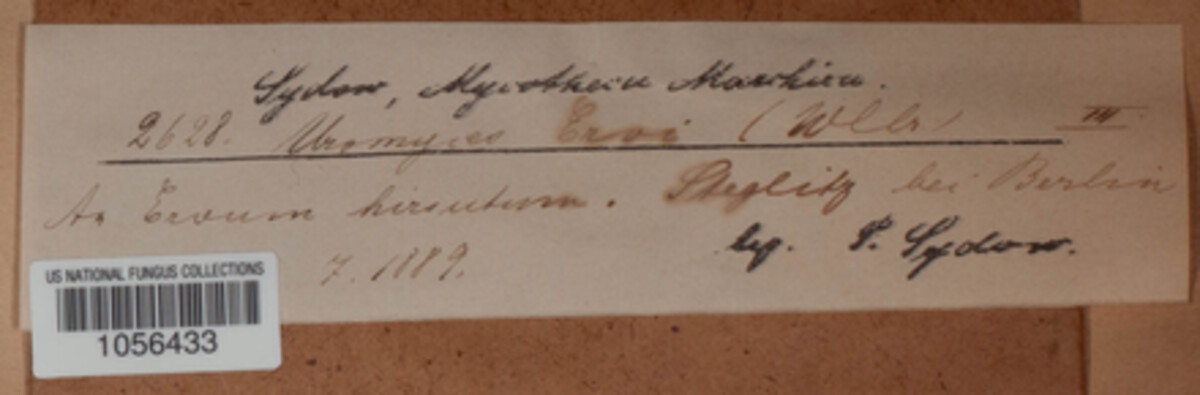 Sydow, Mycotheca Marchica.
2628. Uromyces Ervi (Wllr) III
An Ervum hirsutum. Steglitz bei Berlin
7. 1889. leg. P. Sydow.
US NATIONAL FUNGUS COLLECTIONS
1056433